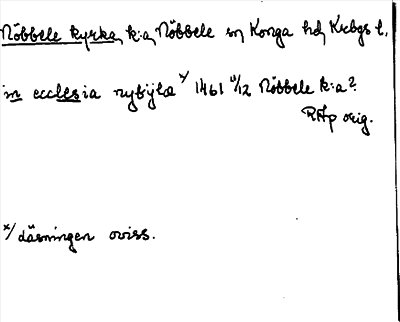 Nöbbele kyrka, k:a, Nöbbele sn Konga hd, Krbgs l,
in ecclesia nybýlæ x/ 1461 11/12 Nöbbele k:a?
RAp orig.
x/ läsningen oviss.